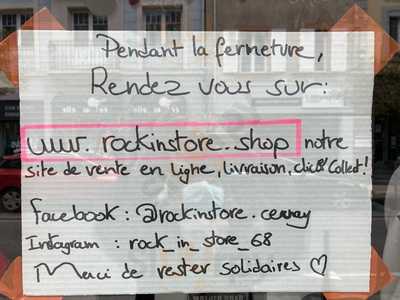 Pendant la fermeture,
Rendez vous sur:
www.rockinstore.shop notre
site de vente en ligne, livraison, click & Collect!
facebook : @rockinstore.cernay
Instagram : rock_in_store_68
Merci de rester solidaires ♡